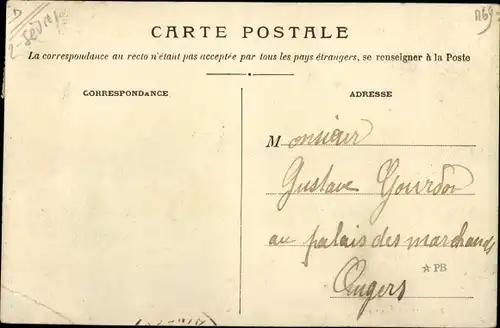 2-Sèvres
CARTE POSTALE
La correspondance au recto n'étant pas acceptée par tous les pays étrangers, se renseigner à la Poste
CORRESPONDANCE
ADRESSE
Monsieur
Gustave Gourdon
au palais des marchands
Angers
☆ PB